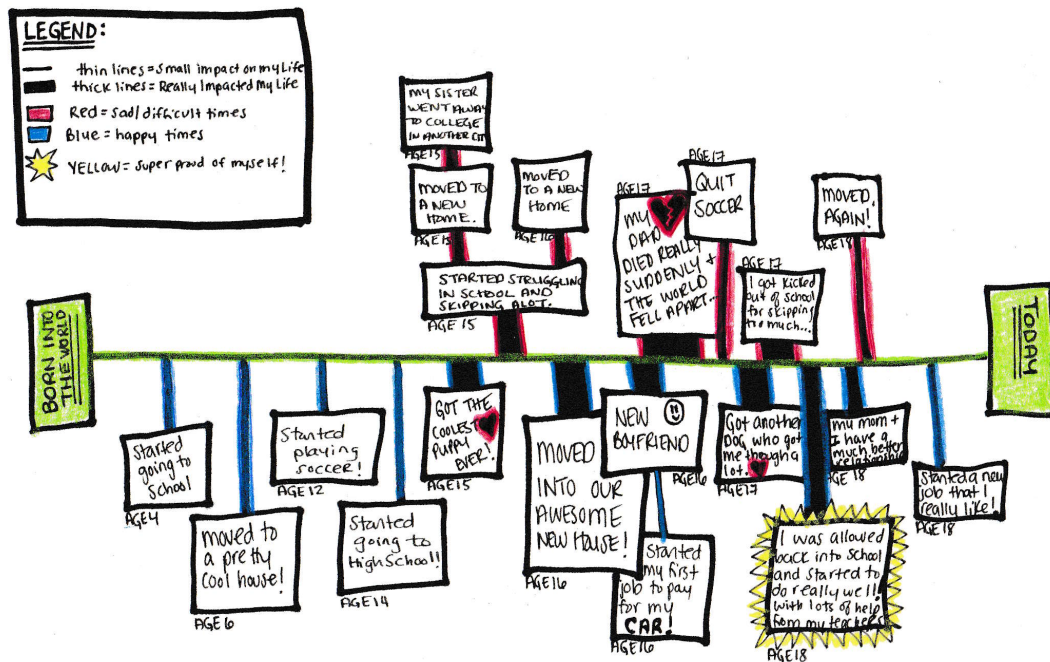 LEGEND:
thin lines = Small impact on my Life
thick lines = Really Impacted My Life
Red = Sad/difficult times
Blue = happy times
YELLOW = Super proud of myself!
MY SISTER
WENT AWAY
TO COLLEGE
IN ANOTHER CITY
AGE 15
MOVED TO
A NEW
HOME.
AGE 15
MOVED
TO A NEW
HOME
AGE 16
STARTED STRUGGLING
IN SCHOOL AND
SKIPPING ALOT.
AGE 15
AGE 17
MY
DAD
DIED REALLY
SUDDENLY +
THE WORLD
FELL APART...
AGE 17
QUIT
SOCCER
AGE 17
I got kicked
out of school
for skipping
too much...
MOVED,
AGAIN!
AGE 18
BORN INTO
THE WORLD
TODAY
Started
going to
School
AGE 4
moved to
a pretty
cool house!
AGE 6
Started
playing
soccer!
AGE 12
Started
going to
High School!!
AGE 14
GOT THE
COOLEST
PUPPY
EVER!
AGE 15
MOVED
INTO OUR
AWESOME
NEW HOUSE!
AGE 16
NEW
BOYFRIEND
AGE 16
Started
my first
job to pay
for my
CAR!
AGE 16
Got another
DOG, who got
me though a
lot.
AGE 17
my mom +
I have a
much better
relationship
AGE 18
I was allowed
back into School
and started to
do really well!
with lots of help
from my teachers
AGE 18
Started a new
job that I
really like!
AGE 18